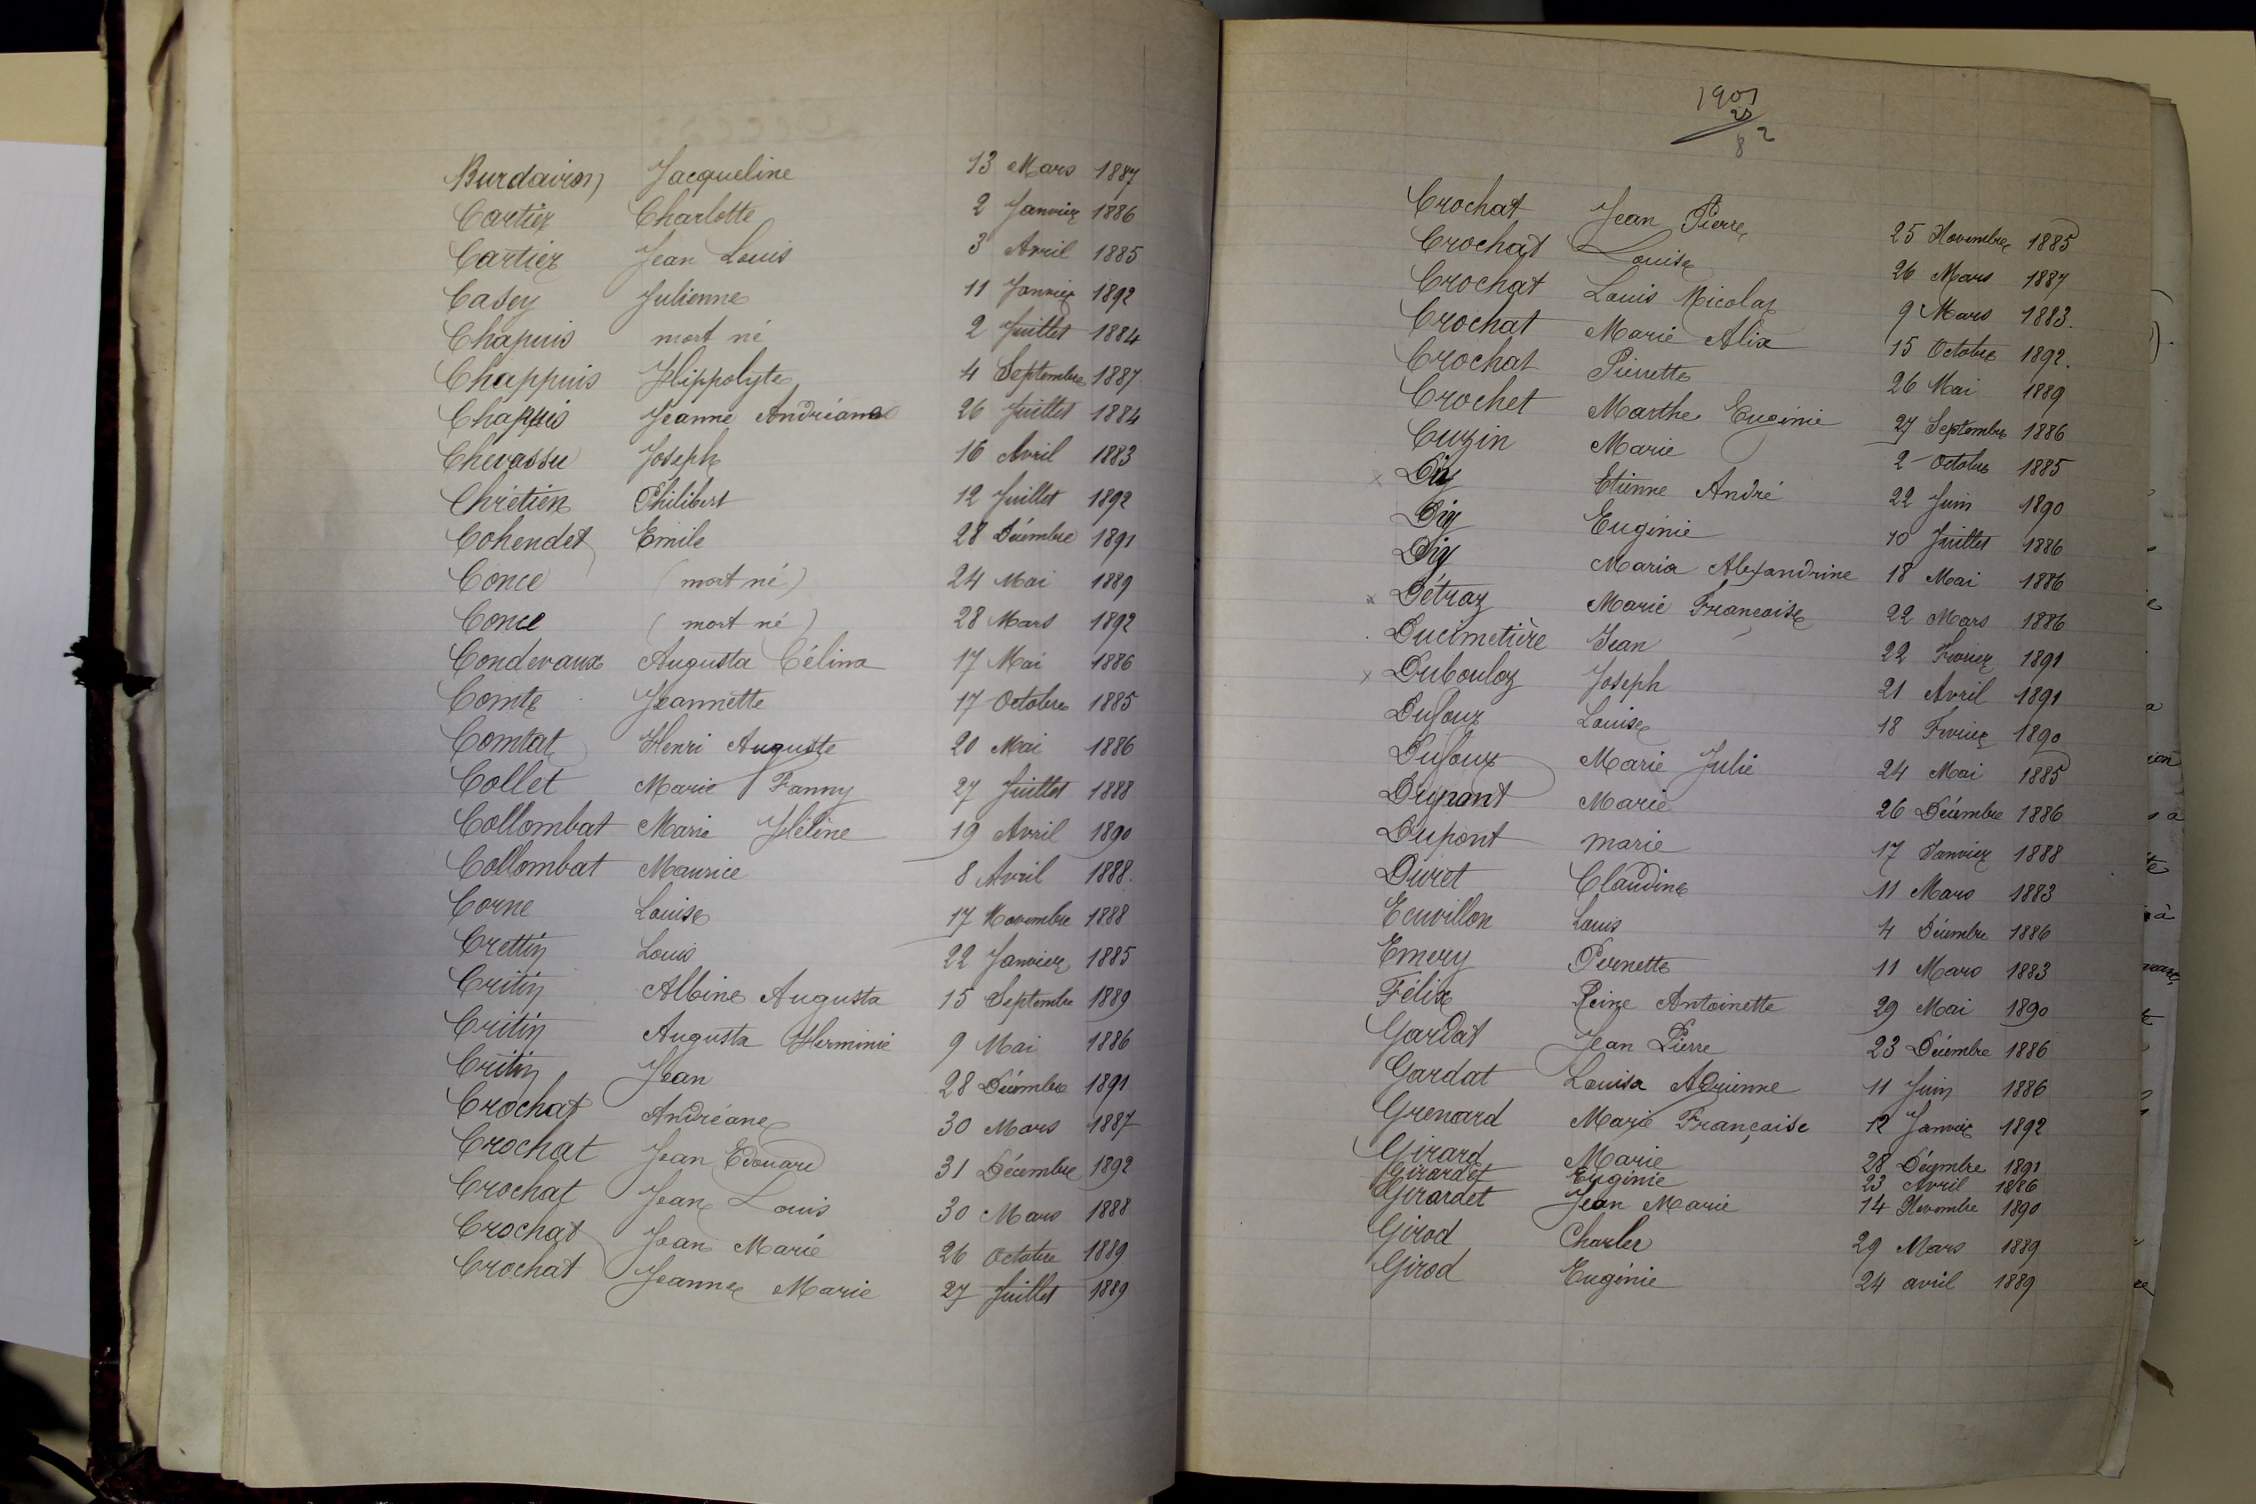 Burdairon Jacqueline 13 Mars 1887
Cartier Charlotte 2 Janvier 1886
Cartier Jean Louis 3 Avril 1885
Casey Julienne 11 Janvier 1892
Chapuis mort né 2 Juillet 1884
Chappuis Hippolyte 4 Septembre 1887
Chappuis Jeanne Andréane 26 Juillet 1884
Chevassu Joseph 16 Avril 1883
Chrétien Philibert 12 Juillet 1892
Cohendet Emile 28 Décembre 1891
Conce (mort né) 24 Mai 1889
Conce (mort né) 28 Mars 1892
Condevaux Augusta Célina 17 Mai 1886
Comte Jeannette 17 Octobre 1885
Comtat Henri Auguste 20 Mai 1886
Collet Marie Fanny 27 Juillet 1888
Collombat Marie Héline 19 Avril 1890
Collombat Maurice 8 Avril 1888.
Corne Louise 17 Novembre 1888
Crettin Louis 22 Janvier 1885
Critin Albine Augusta 15 Septembre 1889
Critin Augusta Herminie 9 Mai 1886
Critin Jean 28 Décembre 1891
Crochat Andréane 30 Mars 1887
Crochat Jean Edouard 31 Décembre 1892
Crochat Jean Louis 30 Mars 1888
Crochat Jean Marie 26 Octobre 1889
Crochat Jeanne Marie 27 Juillet 1889
1901
82
Crochat Jean Pierre 25 Novembre 1885
Crochat Louise 26 Mars 1887
Crochat Louis Nicolas 9 Mars 1883.
Crochat Marie Alix 15 Octobre 1892.
Crochat Pierrette 26 Mai 1889
Crochet Marthe Eugénie 27 Septembre 1886
Cuzin Marie 2 Octobre 1885
x Dig Etienne André 22 Juin 1890
Dig Eugénie 10 Juillet 1886
Dig Maria Alexandrine 18 Mai 1886
x Détraz Marie Françoise 22 Mars 1886
Ducimetière Jean 22 Fevrier 1891
x Dubouloz Joseph 21 Avril 1891
Dufour Louise 18 Fevrier 1890
Dufour Marie Julie 24 Mai 1885
Dupont Marie 26 Décembre 1886
Dupont marie 17 Janvier 1888
Duret Claudine 11 Mars 1883
Ecuvillon Louis 4 Décembre 1886
Emery Pernette 11 Mars 1883
Félix Reine Antoinette 29 Mai 1890
Gardat Jean Pierre 23 Décembre 1886
Gardat Louisa Adrienne 11 Juin 1886
Grenard Marie Françoise 12 Janvier 1892
Girard Marie 28 Décembre 1891
Girardet Eugénie 23 Avril 1886
Girardet Jean Marie 14 Novembre 1890
Girod Charles 29 Mars 1889
Girod Eugénie 24 avril 1889